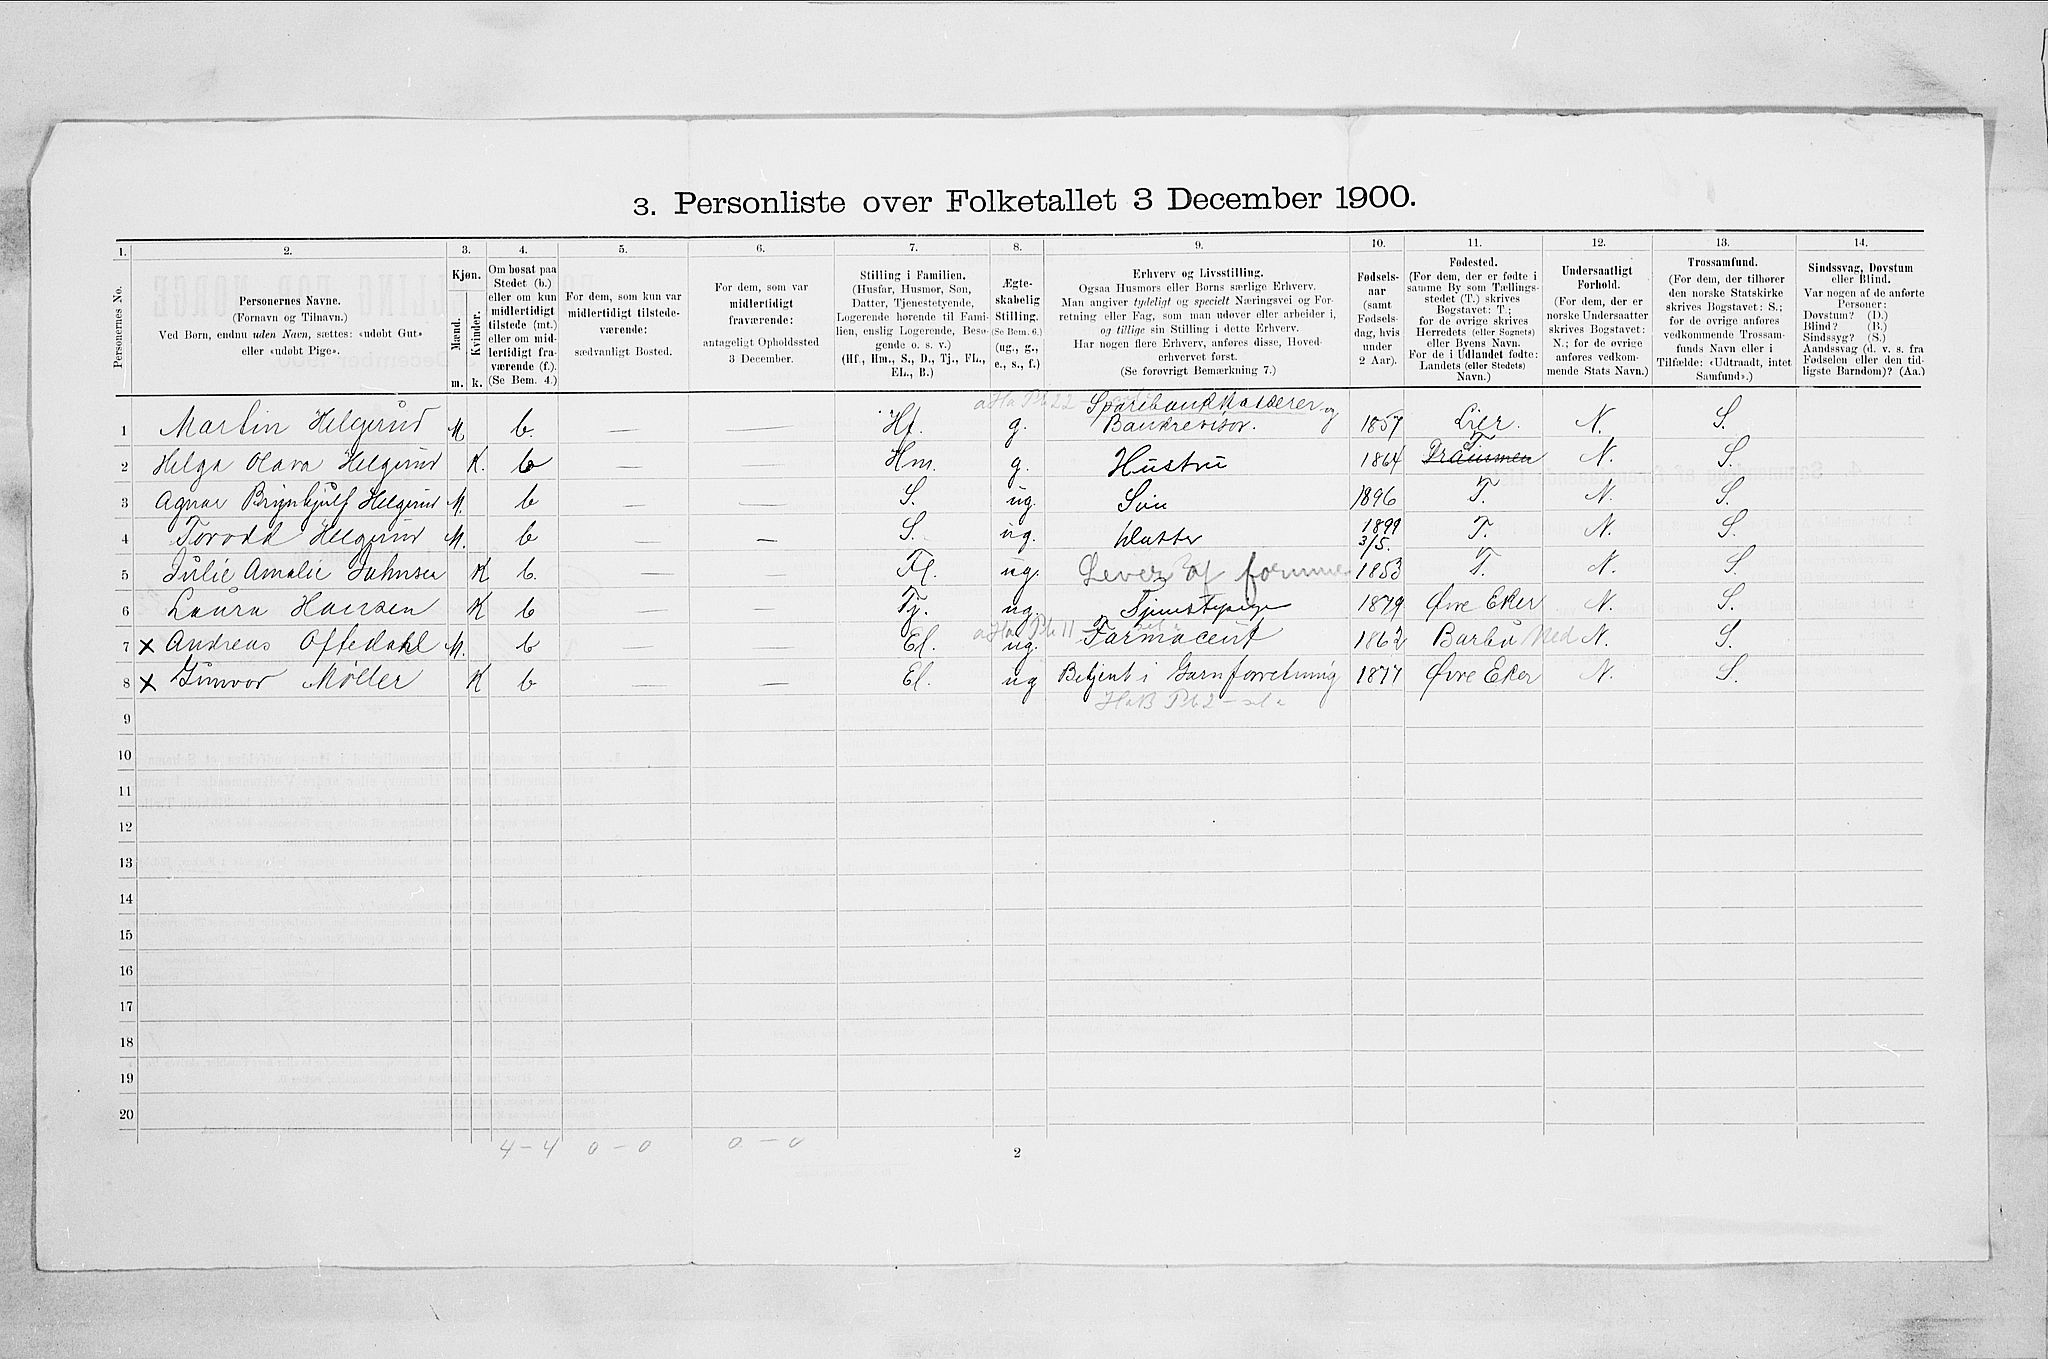 3. Personliste over Folketallet 3 December 1900.
1. 2. 3. 4. 5. 6. 7. 8. 9. 10. 11. 12. 13. 14.
Personernes No.
Personernes Navne.
(Fornavn og Tilnavn.)
Ved Børn, endnu uden Navn, sættes: «udøbt Gut»
eller «udøbt Pige».
Kjøn.
Mænd.
Kvinder.
m. k.
Om bosat paa
Stedet (b.)
eller om kun
midlertidigt
tilstede (mt.)
eller om mid-
lertidigt fra-
værende (f.).
(Se Bem. 4.)
For dem, som kun var
midlertidigt tilstede-
værende:
sædvanligt Bosted.
For dem, som var
midlertidigt
fraværende:
antageligt Opholdssted
3 December.
Stilling i Familien.
(Husfar, Husmor, Søn,
Datter, Tjenestetyende,
Logerende hørende til Fami-
lien, enslig Logerende, Besø-
gende o. s. v.)
(Hf., Hm., S., D., Tj., FL.,
EL., B.)
Ægte-
skabelig
Stilling.
(Se Bem. 6.)
(ug., g.,
e., s., f.)
Erhverv og Livsstilling.
Ogsaa Husmors eller Børns særlige Erhverv.
Man angiver tydeligt og specielt Næringsvei og For-
retning eller Fag, som man udøver eller arbeider i,
og tillige sin Stilling i dette Erhverv.
Har nogen flere Erhverv, anføres disse, Hoved-
erhvervet først.
(Se forøvrigt Bemærkning 7.)
Fødsels-
aar
(samt
Fødsels-
dag, hvis
under
2 Aar).
Fødested.
(For dem, der er fødte i
samme By som Tællings-
stedet (T.) skrives
Bogstavet: T.;
for de øvrige skrives
Herredets (eller Sognets)
eller Byens Navn.
For de i Udlandet fødte:
Landets (eller Stedets)
Navn.)
Undersaatligt
Forhold.
(For dem, der er
norske Undersaatter
skrives Bogstavet:
N.; for de øvrige
anføres vedkom-
mende Stats Navn.)
Trossamfund.
(For dem, der tilhører
den norske Statskirke
skrives Bogstavet: S.;
for de øvrige anføres
vedkommende Trossam-
funds Navn eller i
Tilfælde: «Udtraadt, intet
Samfund».)
Sindssvag, Døvstum
eller Blind.
Var nogen af de anførte
Personer:
Døvstum? (D.)
Blind? (B.)
Sindssyg? (S.)
Aandssvag (d. v. s. fra
Fødselen eller den tid-
ligste Barndom)? (Aa.)
aHa Pb 22
Sparebankkasserer og
1 Martin Helgerud M b. — — Hf. g. Bankrevisor. 1857 Lier. N. S.
T.
2 Helga Olava Helgerud K. b — — Hm. g. Hustru 1864 Drammen N. S.
3 Agnar Brynhjulf Helgerud M. b — — S. ug. Søn 1896 T. N. S.
4 Torodd Helgerud M. b — — S. ug. Datter 1899 3/5. T. N. S.
5 Julie Amalie Johnsen K b. — — Fl. ug. Lever af formue 1853 T. N. S.
6 Laura Hansen K b — — Tj. ug. Tjenestepige 1879 Øvre Eker N. S.
aHa Pb 11
7 x Andreas Offedahl M. b — — El. ug. Farmaceut 1862 Barbu Ned N. S.
8 x Gunvor Møller K b — — El. ug Betjent i Garnforretning 1877 Øvre Eker N. S.
HaB Pb 2
9
10
11
12
13
14
15
16
17
18
19
20
4 – 4 0 – 0 0 – 0
2